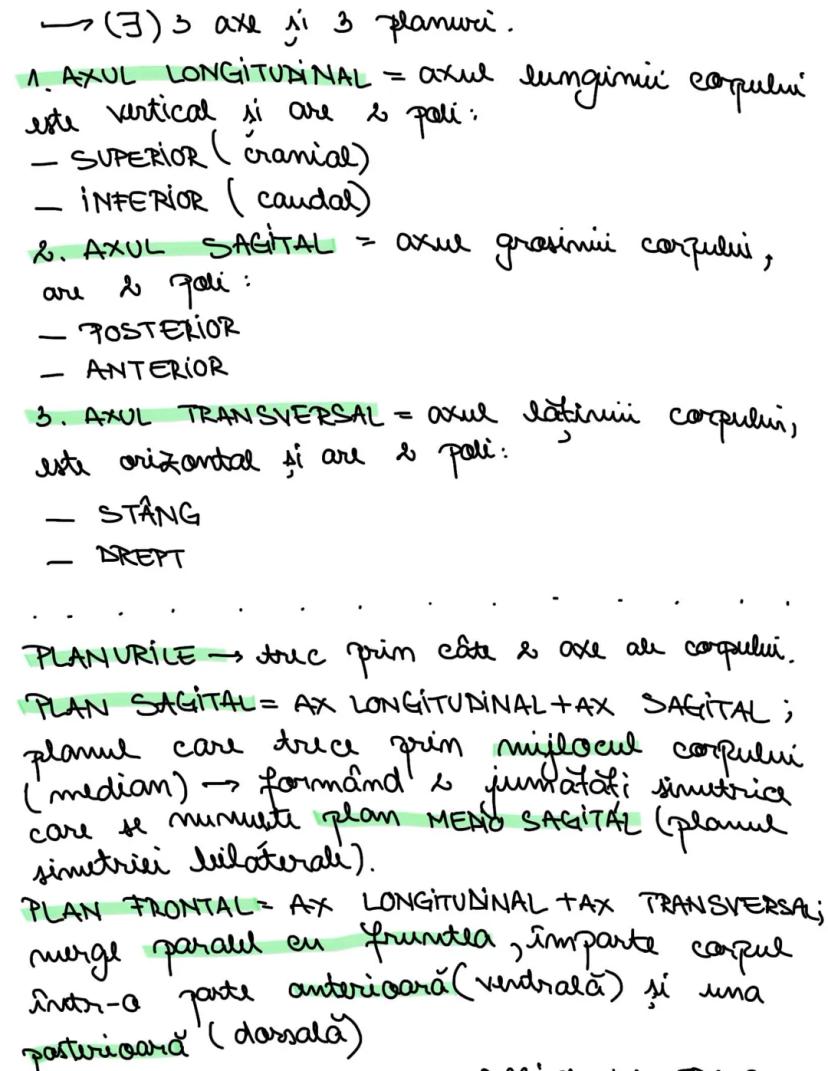 → (∃) 3 axe și 3 planuri.
1. AXUL LONGITUDINAL = axul lungimii corpului
este vertical și are 2 poli:
— SUPERIOR (cranial)
— INFERIOR (caudal)
2. AXUL SAGITAL = axul grosimii corpului,
are 2 poli:
— POSTERIOR
— ANTERIOR
3. AXUL TRANSVERSAL = axul lățimii corpului,
este orizontal și are 2 poli:
— STÂNG
— DREPT
. . . . . . . . . . . . .
PLANURILE → trec prin câte 2 axe ale corpului.
PLAN SAGITAL = AX LONGITUDINAL + AX SAGITAL ;
planul care trece prin mijlocul corpului
(median) → formând 2 jumătăți simetrice
care se numește plan MEDIO SAGITAL (planul
simetriei bilaterale).
PLAN FRONTAL = AX LONGITUDINAL + AX TRANSVERSAL;
merge paralel cu fruntea, împarte corpul
într-o parte anterioară (ventrală) și una
posterioară (dorsală)